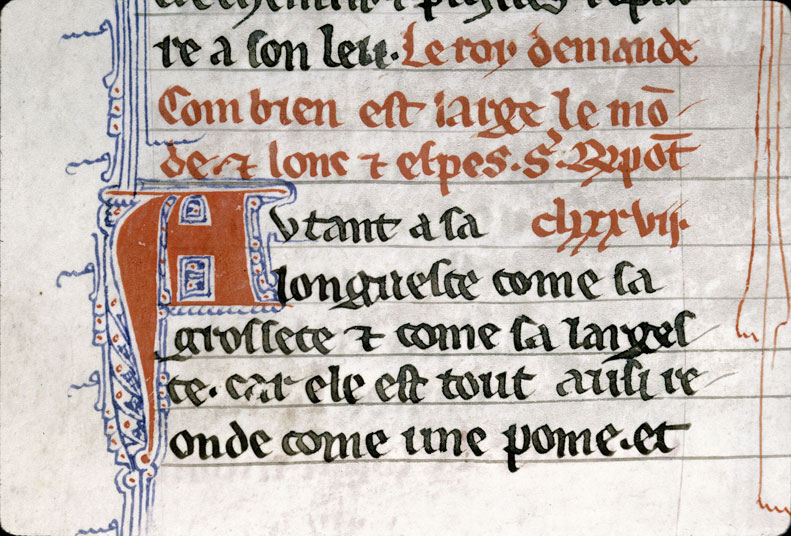 re a son leu. Le roy demande
Combien est large le mō
de. ⁊ lonc ⁊ espes. S. Rpōt
Autant a sa clxxvii.
longueste come sa
grossece ⁊ come sa larges
te. car ele est tout ausi re
onde come une pome. et